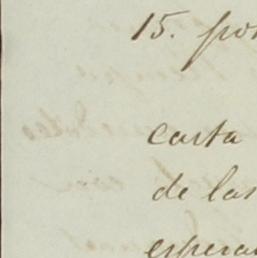 15. por
carta
de las
espera